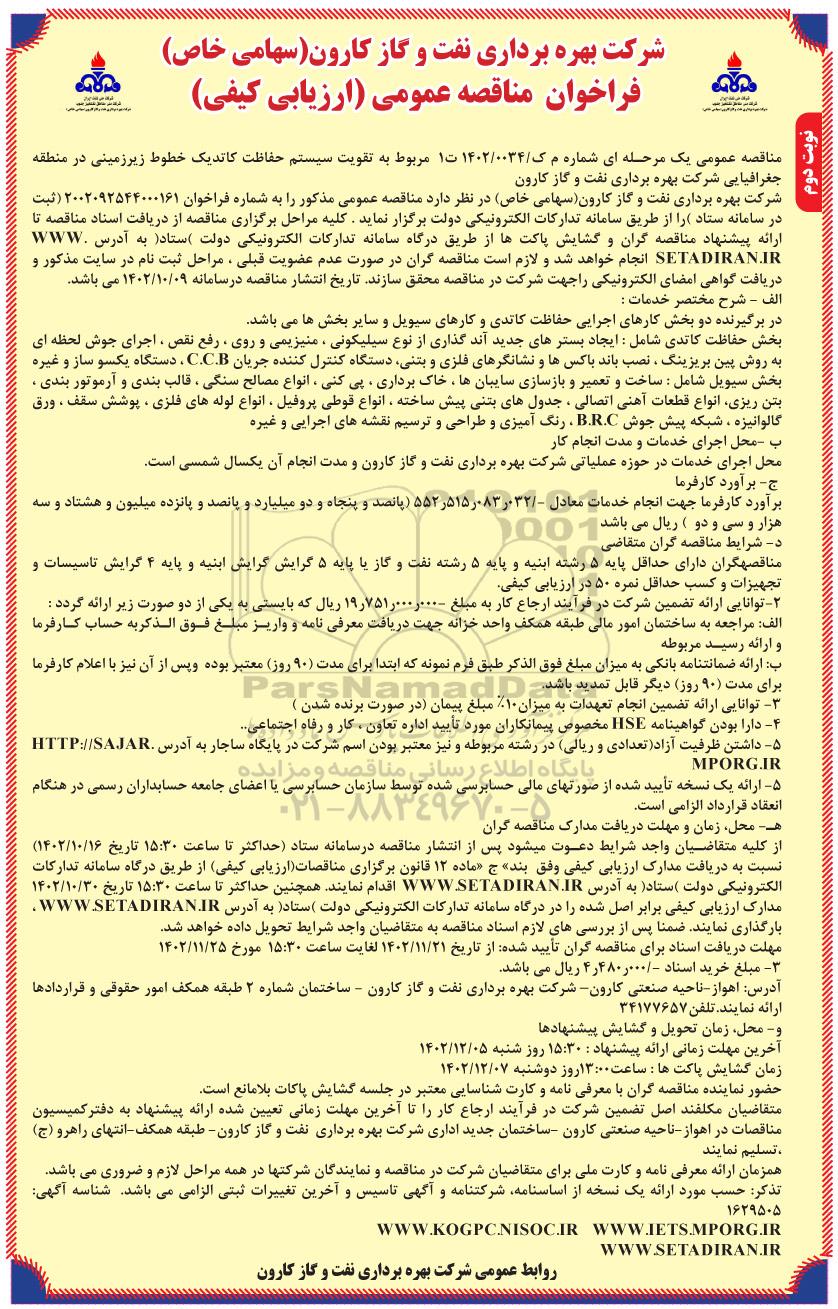 شرکت بهره برداری نفت و گاز کارون(سهامی خاص)
فراخوان مناقصه عمومی (ارزیابی کیفی)
نوبت دوم
مناقصه عمومی یک مرحـله ای شماره م ک/۱۴۰۲/۰۰۳۴ ت۱ مربوط به تقویت سیستم حفاظت کاتدیک خطوط زیرزمینی در منطقه
جغرافیایی شرکت بهره برداری نفت و گاز کارون
شرکت بهره برداری نفت و گاز کارون(سهامی خاص) در نظر دارد مناقصه عمومی مذکور را به شماره فراخوان ۲۰۰۲۰۹۲۵۴۴۰۰۰۱۶۱ (ثبت
در سامانه ستاد )را از طریق سامانه تدارکات الکترونیکی دولت برگزار نماید . کلیه مراحل برگزاری مناقصه از دریافت اسناد مناقصه تا
ارائه پیشنهاد مناقصه گران و گشایش پاکت ها از طریق درگاه سامانه تدارکات الکترونیکی دولت )ستاد( به آدرس .WWW
SETADIRAN.IR انجام خواهد شد و لازم است مناقصه گران در صورت عدم عضویت قبلی ، مراحل ثبت نام در سایت مذکور و
دریافت گواهی امضای الکترونیکی راجهت شرکت در مناقصه محقق سازند. تاریخ انتشار مناقصه درسامانه ۱۴۰۲/۱۰/۰۹ می باشد.
الف - شرح مختصر خدمات :
در برگیرنده دو بخش کارهای اجرایی حفاظت کاتدی و کارهای سیویل و سایر بخش ها می باشد.
بخش حفاظت کاتدی شامل : ایجاد بستر های جدید آند گذاری از نوع سیلیکونی ، منیزیمی و روی ، رفع نقص ، اجرای جوش لحظه ای
به روش پین بریزینگ ، نصب باند باکس ها و نشانگرهای فلزی و بتنی، دستگاه کنترل کننده جریان C.C.B ، دستگاه یکسو ساز و غیره
بخش سیویل شامل : ساخت و تعمیر و بازسازی سایبان ها ، خاک برداری ، پی کنی ، انواع مصالح سنگی ، قالب بندی و آرموتور بندی ،
بتن ریزی، انواع قطعات آهنی اتصالی ، جدول های بتنی پیش ساخته ، انواع قوطی پروفیل ، انواع لوله های فلزی ، پوشش سقف ، ورق
گالوانیزه ، شبکه پیش جوش B.R.C ، رنگ آمیزی و طراحی و ترسیم نقشه های اجرایی و غیره
ب -محل اجرای خدمات و مدت انجام کار
محل اجرای خدمات در حوزه عملیاتی شرکت بهره برداری نفت و گاز کارون و مدت انجام آن یکسال شمسی است.
ج- برآورد کارفرما
برآورد کارفرما جهت انجام خدمات معادل -/۵۵۲ر۵۱۵ر۰۸۳ر۰۳۲ (پانصد و پنجاه و دو میلیارد و پانصد و پانزده میلیون و هشتاد و سه
هزار و سی و دو ) ریال می باشد
د- شرایط مناقصه گران متقاضی
مناقصهگران دارای حداقل پایه ۵ رشته ابنیه و پایه ۵ رشته نفت و گاز یا پایه ۵ گرایش گرایش ابنیه و پایه ۴ گرایش تاسیسات و
تجهیزات و کسب حداقل نمره ۵۰ در ارزیابی کیفی.
۲-توانایی ارائه تضمین شرکت در فرآیند ارجاع کار به مبلغ -۱۹ر۷۵۱ر۰۰۰ر۰۰۰ ریال که بایستی به یکی از دو صورت زیر ارائه گردد :
الف: مراجعه به ساختمان امور مالی طبقه همکف واحد خزانه جهت دریافت معرفی نامه و واریـز مبلـغ فـوق الـذکربه حساب کـارفرما
و ارائه رسیـد مربوطه
ب: ارائه ضمانتنامه بانکی به میزان مبلغ فوق الذکر طبق فرم نمونه که ابتدا برای مدت (۹۰ روز) معتبر بوده وپس از آن نیز با اعلام کارفرما
برای مدت (۹۰ روز) دیگر قابل تمدید باشد.
۳- توانایی ارائه تضمین انجام تعهدات به میزان۱۰٪ مبلغ پیمان (در صورت برنده شدن )
۴- دارا بودن گواهینامه HSE مخصوص پیمانکاران مورد تأیید اداره تعاون ، کار و رفاه اجتماعی..
۵- داشتن ظرفیت آزاد(تعدادی و ریالی) در رشته مربوطه و نیز معتبر بودن اسم شرکت در پایگاه ساجار به آدرس HTTP://SAJAR.
MPORG.IR
۵- ارائه یک نسخه تأیید شده از صورتهای مالی حسابرسی شده توسط سازمان حسابرسی یا اعضای جامعه حسابداران رسمی در هنگام
انعقاد قرارداد الزامی است.
هـ- محل، زمان و مهلت دریافت مدارک مناقصه گران
از کلیه متقاضـیان واجد شرایط دعـوت میشود پس از انتشار مناقصه درسامانه ستاد (حداکثر تا ساعت ۱۵:۳۰ تاریخ ۱۴۰۲/۱۰/۱۶)
نسبت به دریافت مدارک ارزیابی کیفی وفق بند» ج «ماده ۱۲ قانون برگزاری مناقصات(ارزیابی کیفی) از طریق درگاه سامانه تدارکات
الکترونیکی دولت )ستاد( به آدرس WWW.SETADIRAN.IR اقدام نمایند. همچنین حداکثر تا ساعت ۱۵:۳۰ تاریخ ۱۴۰۲/۱۰/۳۰
مدارک ارزیابی کیفی برابر اصل شده را در درگاه سامانه تدارکات الکترونیکی دولت )ستاد( به آدرس WWW.SETADIRAN.IR ،
بارگذاری نمایند. ضمنا پس از بررسی های لازم اسناد مناقصه به متقاضیان واجد شرایط تحویل داده خواهد شد.
مهلت دریافت اسناد برای مناقصه گران تأیید شده: از تاریخ ۱۴۰۲/۱۱/۲۱ لغایت ساعت ۱۵:۳۰ مورخ ۱۴۰۲/۱۱/۲۵
۳- مبلغ خرید اسناد -/۴ر۴۸۰ر۰۰۰ ریال می باشد.
آدرس: اهواز-ناحیه صنعتی کارون- شرکت بهره برداری نفت و گاز کارون - ساختمان شماره ۲ طبقه همکف امور حقوقی و قراردادها
ارائه نمایند.تلفن۳۴۱۷۷۶۵۷
و- محل، زمان تحویل و گشایش پیشنهادها
آخرین مهلت زمانی ارائه پیشنهاد : ۱۵:۳۰ روز شنبه ۱۴۰۲/۱۲/۰۵
زمان گشایش پاکت ها : ساعت۱۳:۰۰روز دوشنبه ۱۴۰۲/۱۲/۰۷
حضور نماینده مناقصه گران با معرفی نامه و کارت شناسایی معتبر در جلسه گشایش پاکات بلامانع است.
متقاضیان مکلفند اصل تضمین شرکت در فرآیند ارجاع کار را تا آخرین مهلت زمانی تعیین شده ارائه پیشنهاد به دفترکمیسیون
مناقصات در اهواز-ناحیه صنعتی کارون -ساختمان جدید اداری شرکت بهره برداری نفت و گاز کارون- طبقه همکف-انتهای راهرو (ج)
،تسلیم نمایند
همزمان ارائه معرفی نامه و کارت ملی برای متقاضیان شرکت در مناقصه و نمایندگان شرکتها در همه مراحل لازم و ضروری می باشد.
تذکر: حسب مورد ارائه یک نسخه از اساسنامه، شرکتنامه و آگهی تاسیس و آخرین تغییرات ثبتی الزامی می باشد. شناسه آگهی:
۱۶۲۹۵۰۵
WWW.KOGPC.NISOC.IR WWW.IETS.MPORG.IR
WWW.SETADIRAN.IR
روابط عمومی شرکت بهره برداری نفت و گاز کارون
ParsNamadData
پایگاه اطلاع رسانی مناقصه و مزایده
۰۲۱-۸۸۳۴۹۶۷۰-۵